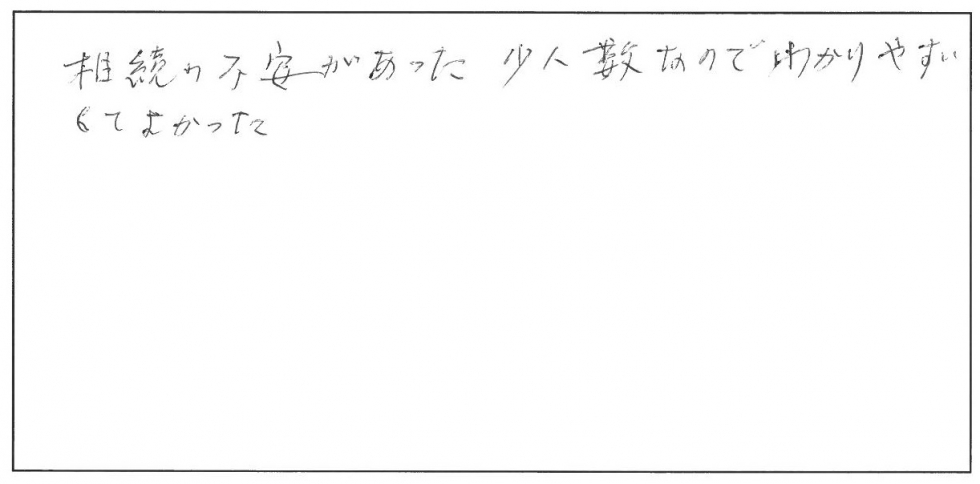 相続の不安があった 少人数なのでわかりやすい
くてよかった